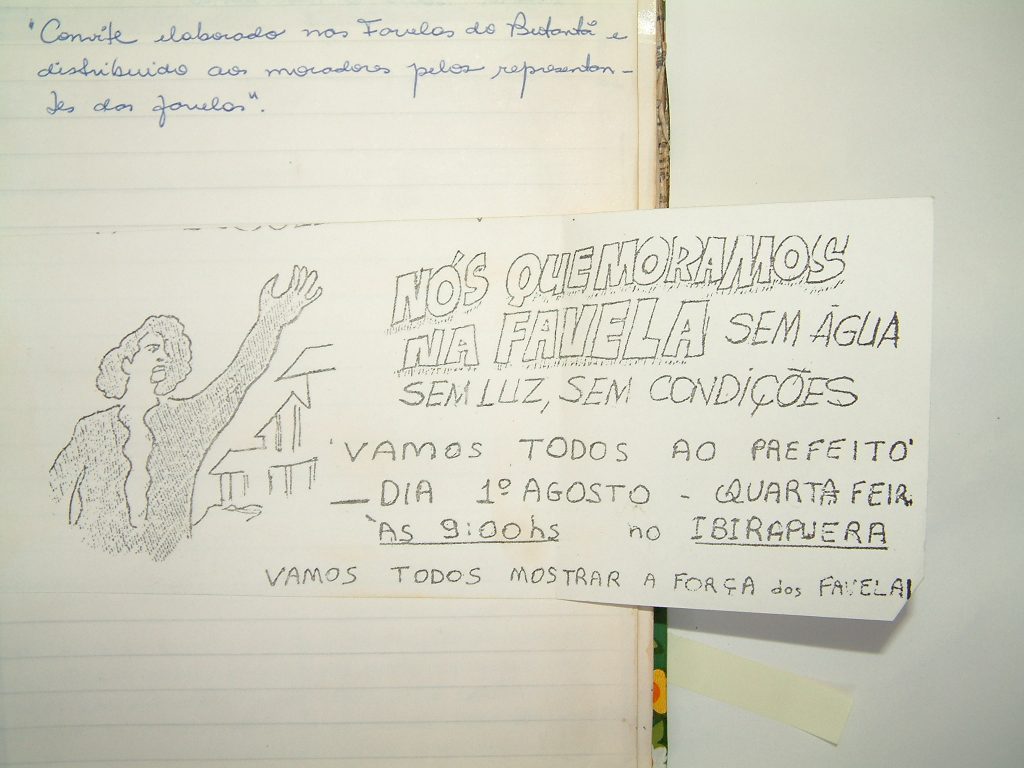 "Convite elaborado nas Favelas do Butantã e
distribuido aos moradores pelos representan-
tes das favelas".
NÓS QUE MORAMOS
NA FAVELA SEM ÁGUA
SEM LUZ, SEM CONDIÇÕES
'VAMOS TODOS AO PREFEITO'
— DIA 1º AGOSTO - QUARTA FEIR
ÀS 9:00hs no IBIRAPUERA
VAMOS TODOS MOSTRAR A FORÇA dos FAVELA